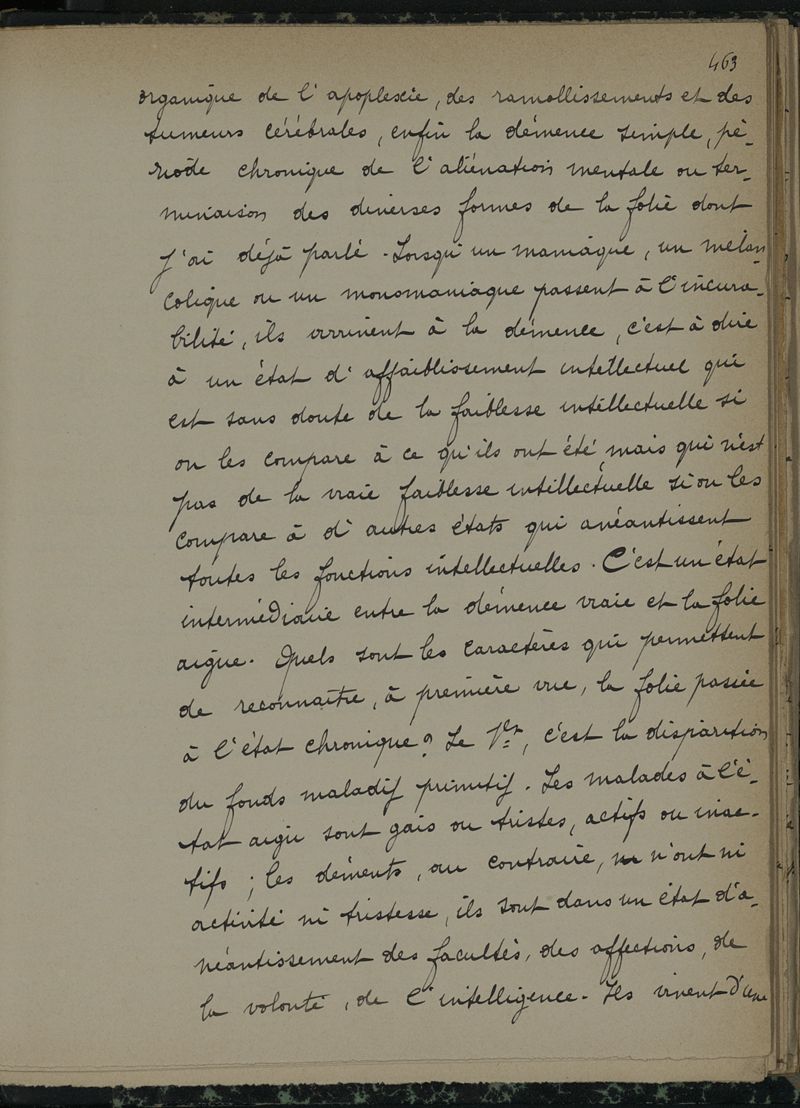 463
organique de l'apoplexie, des ramollissements et des
tumeurs cérébrales, enfin la démence simple, pé-
riode chronique de l'aliénation mentale ou ter-
minaison des diverses formes de la folie dont
j'ai déjà parlé. Lorsqu'un maniaque, un mélan-
colique ou un monomaniaque passent à l'incura-
bilité, ils arrivent à la démence, c'est à dire
à un état d'affaiblissement intellectuel qui
est sans doute de la faiblesse intellectuelle si
on les compare à ce qu'ils ont été mais qui n'est
pas de la vraie faiblesse intellectuelle si on les
compare à d'autres états qui anéantissent
toutes les fonctions intellectuelles. C'est un état
intermédiaire entre la démence vraie et la folie
aigue. Quels sont les caractères qui permettent
de reconnaître, à première vue, la folie passée
à l'état chronique? Le 1er, c'est la disparition
du fonds maladif primitif. Les malades à l'é-
tat aigu sont gais ou tristes, actifs ou inac-
tifs; les déments, au contraire, n'ont ni
activité ni tristesse, ils sont dans un état d'a-
néantissement des facultés, des affections, de
la volonté, de l'intelligence. Ils vivent d'une